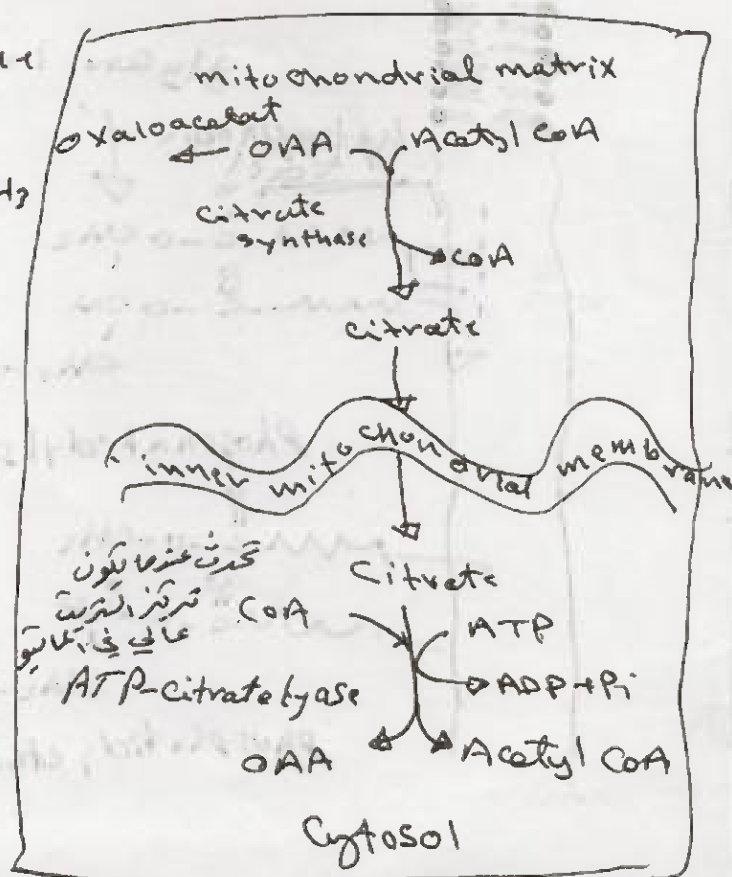 mitochondrial matrix
oxaloacetat ← OAA
Acetyl CoA
citrate
synthase
CoA
citrate
inner mitochondrial membrane
Citrate
تحدث عندما يكون
تركيز الستريت
عالي في
CoA
ATP
ATP-citrate lyase
ADP + Pi
OAA
Acetyl CoA
Cytosol